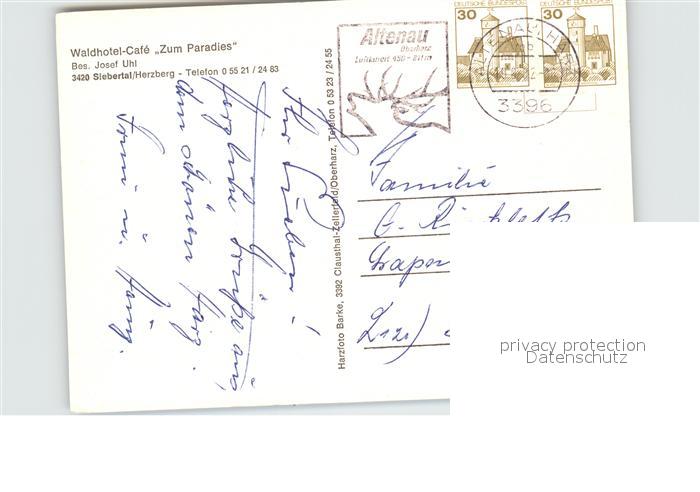 Waldhotel-Café „Zum Paradies"
Bes. Josef Uhl
3420 Siebertal/Herzberg - Telefon 0 55 21 / 24 83
Ihr Lieben!
Herzliche Grüße aus
dem schönen Harz.
Harzfoto Barke, 3392 Clausthal-Zellerfeld/Oberharz, Telefon 0 53 23 / 24 55
Altenau
Oberharz
Luftkurort 450-
30
DEUTSCHE BUNDESPOST
30
DEUTSCHE BUNDESPOST
ALTENAU, HARZ
3396
Familie
G.
privacy protection
Datenschutz